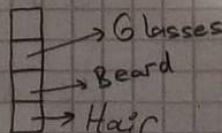 Glasses
Beard
Hair